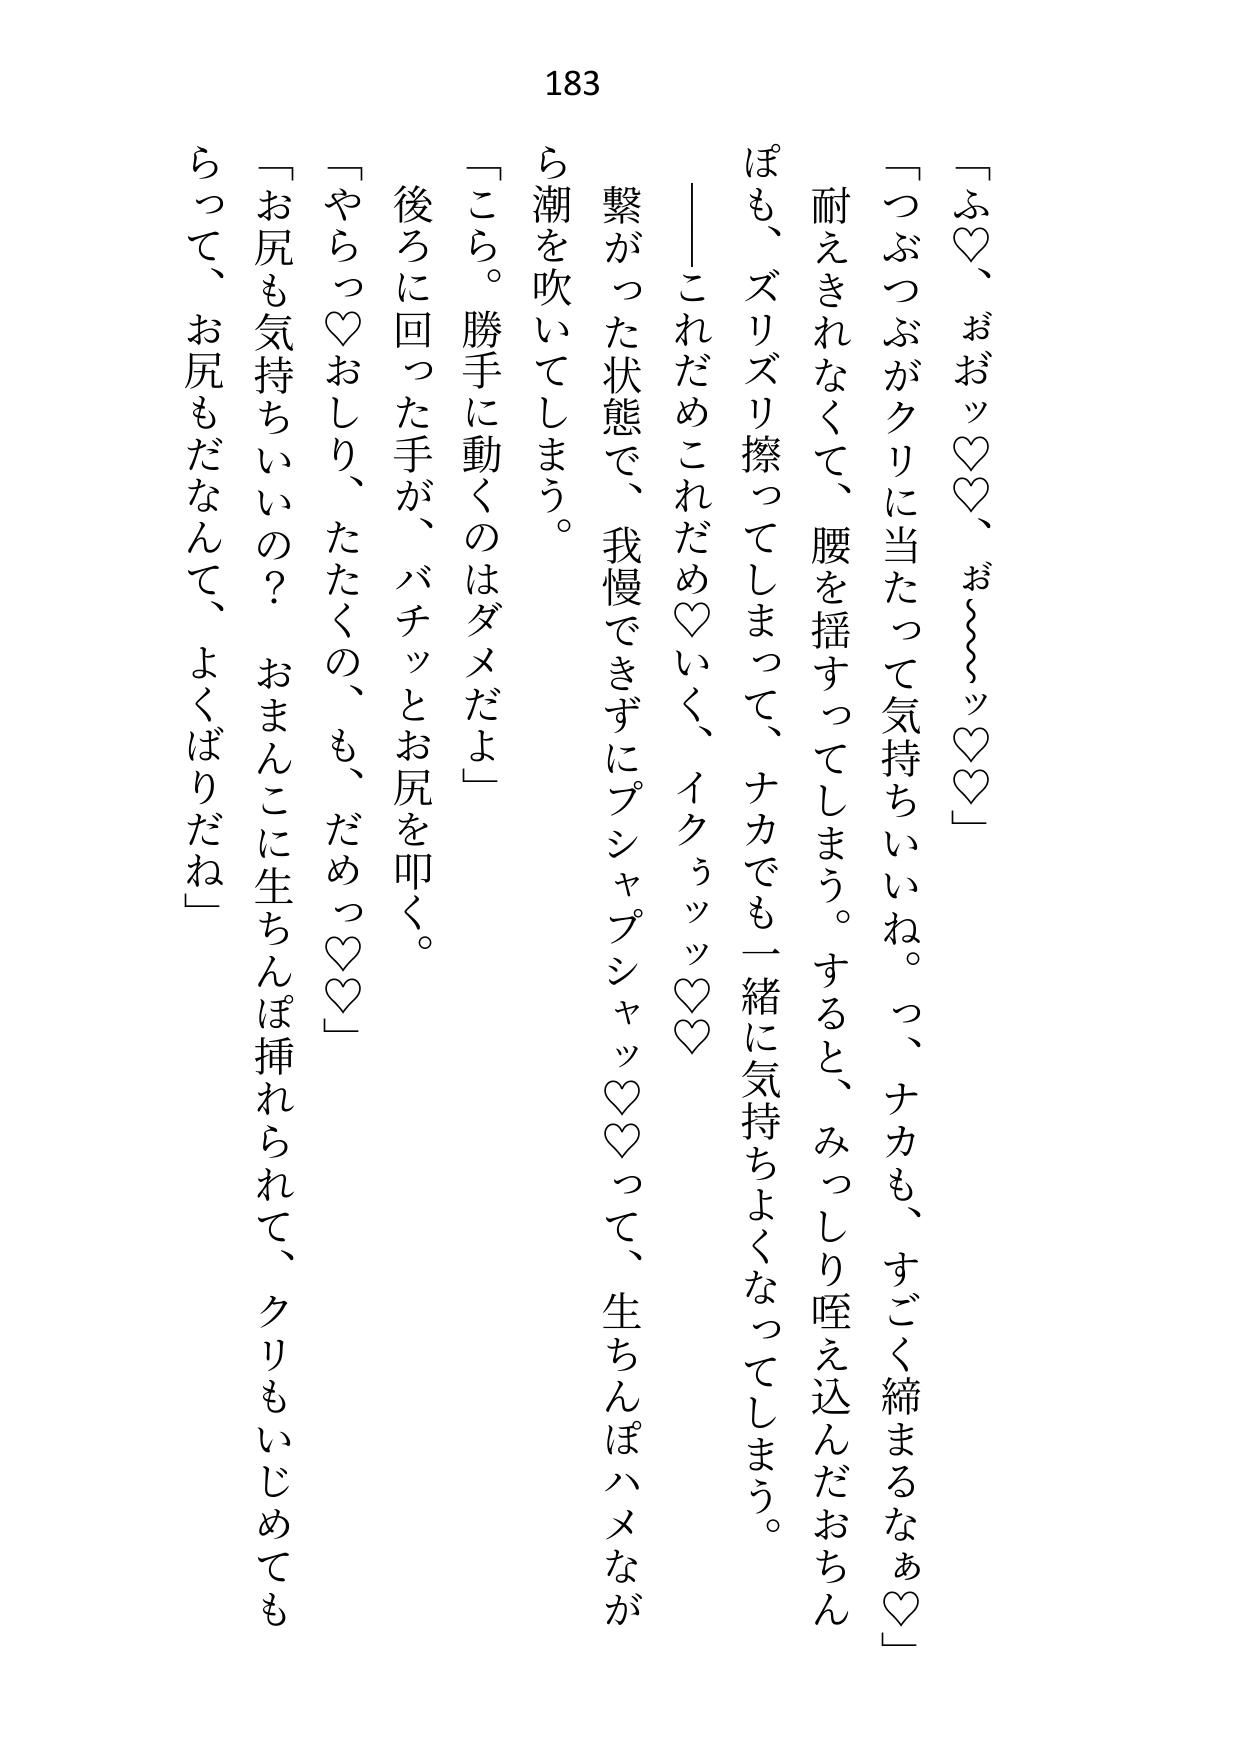 183
「ふ♡、ぉおッ♡♡、ぉ〜〜〜ッ♡♡」
「つぶつぶがクリに当たって気持ちいいね。っ、ナカも、すごく締まるなぁ♡」
　耐えきれなくて、腰を揺すってしまう。すると、みっしり咥え込んだおちん
ぽも、ズリズリ擦ってしまって、ナカでも一緒に気持ちよくなってしまう。
　――これだめこれだめ♡いく、イクぅッッ♡♡
　繋がった状態で、我慢できずにプシャプシャッ♡♡って、生ちんぽハメなが
ら潮を吹いてしまう。
「こら。勝手に動くのはダメだよ」
　後ろに回った手が、バチッとお尻を叩く。
「やらっ♡おしり、たたくの、も、だめっ♡♡」
「お尻も気持ちいいの？　おまんこに生ちんぽ挿れられて、クリもいじめても
らって、お尻もだなんて、よくばりだね」